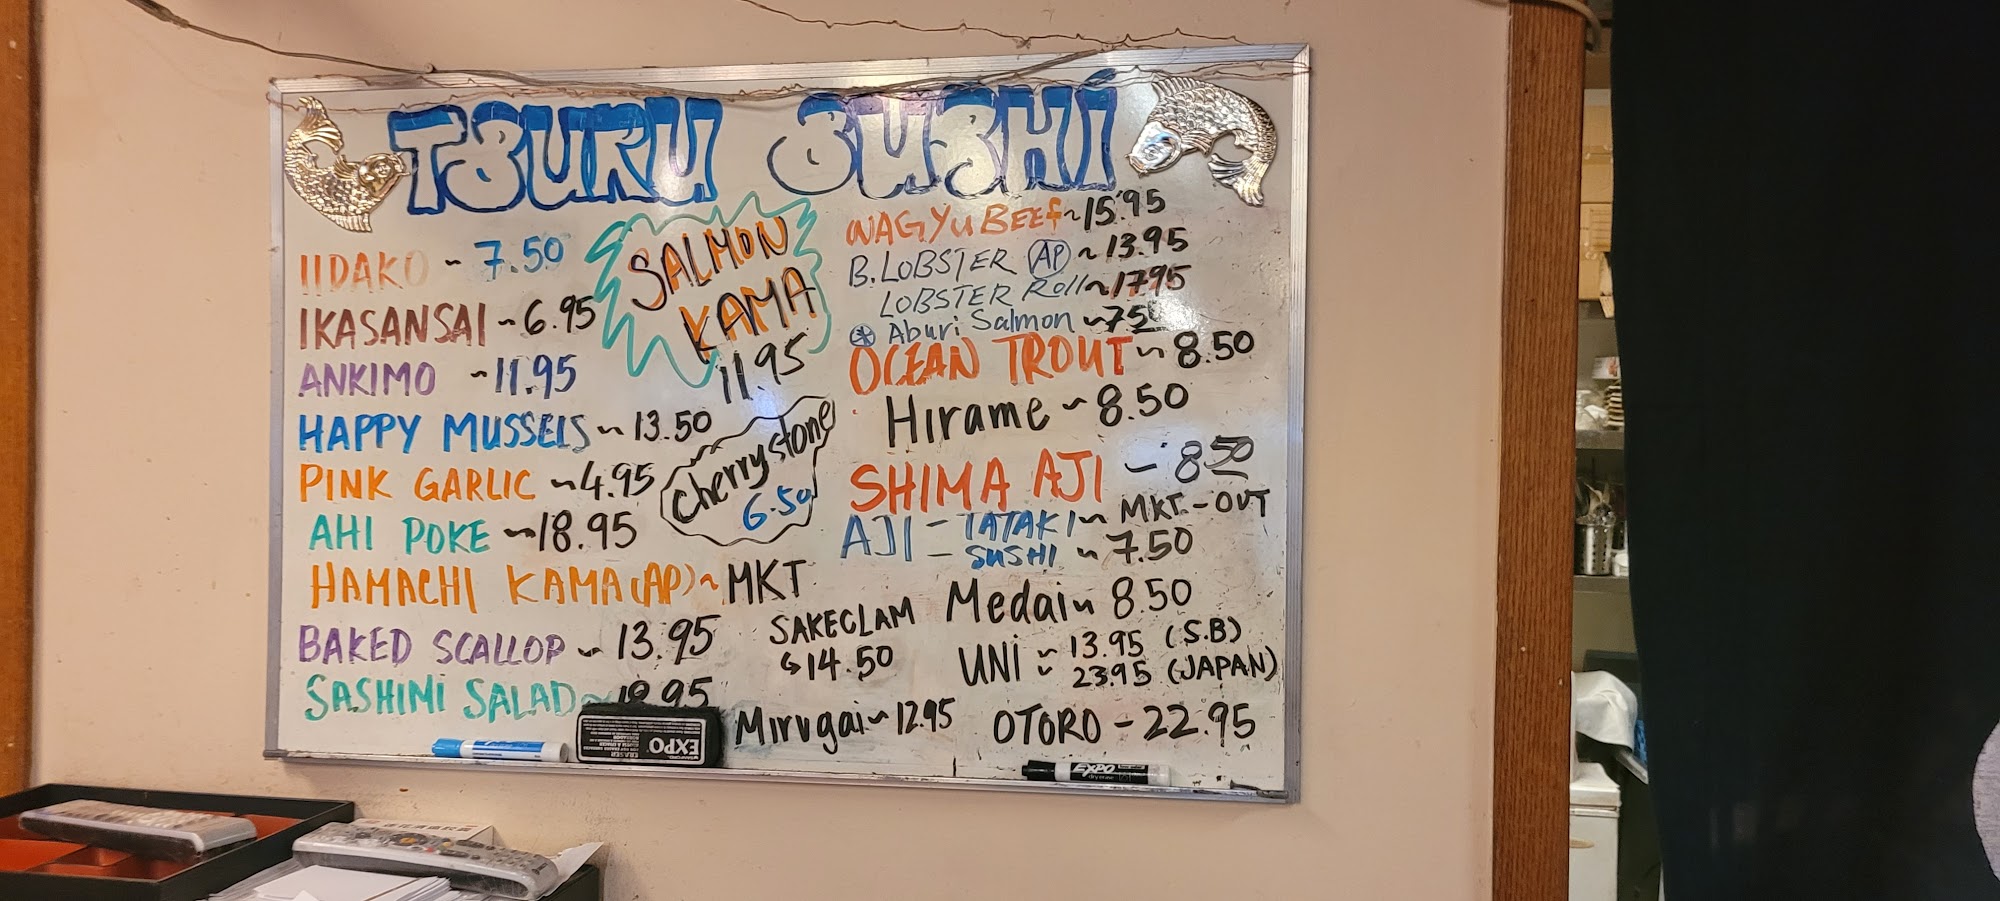 TSURU SUSHI
IIDAKO ~ 7.50
IKASANSAI ~ 6.95
ANKIMO ~ 11.95
HAPPY MUSSELS ~ 13.50
PINK GARLIC ~ 4.95
AHI POKE ~ 18.95
HAMACHI KAMA (AP) ~ MKT
BAKED SCALLOP ~ 13.95
SASHIMI SALAD ~ 18.95
SALMON
KAMA
11.95
Cherrystone
6.50
SAKECLAM
14.50
Mirugai ~ 12.95
WAGYU BEEF ~ 15.95
B. LOBSTER AP ~ 13.95
LOBSTER Roll ~ 17.95
Aburi Salmon ~
OCEAN TROUT ~ 8.50
Hirame ~ 8.50
SHIMA AJI ~ 8.50
AJI - TATAKI ~ MKT - OUT
SUSHI ~ 7.50
Medai ~ 8.50
UNI ~ 13.95 (S.B)
~ 23.95 (JAPAN)
OTORO - 22.95
EXPO
ERASER
EXPO
dry erase